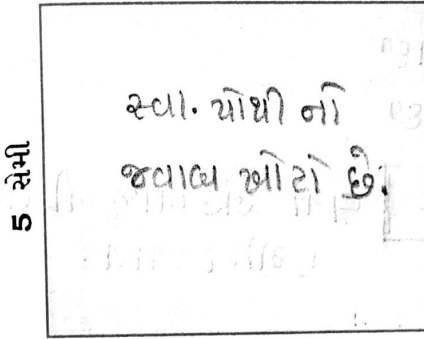 5 સેમી
સ્વા. પોથી નો
જવાબ ખોટો છે.